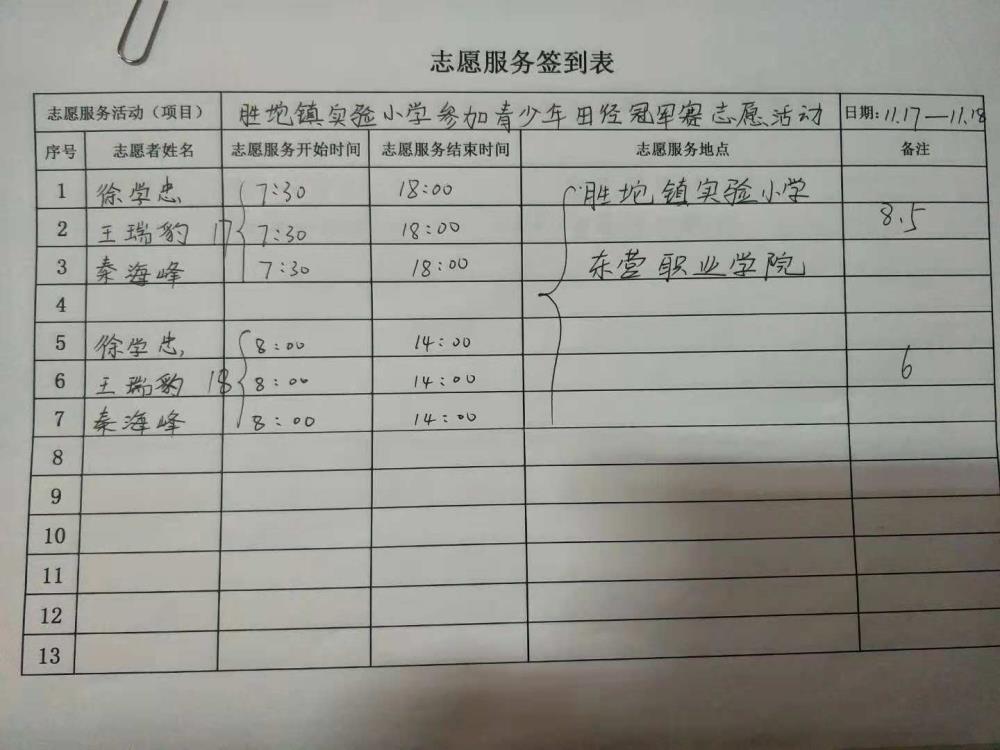 志愿服务签到表
志愿服务活动（项目） 胜坨镇实验小学参加青少年田径冠军赛志愿活动 日期：11.17—11.18
序号 志愿者姓名 志愿服务开始时间 志愿服务结束时间 志愿服务地点 备注
1 徐学忠 7:30 18:00 胜坨镇实验小学
2 王瑞豹 17 7:30 18:00 8.5
3 秦海峰 7:30 18:00 东营职业学院
4
5 徐学忠 8:00 14:00
6 王瑞豹 18 8:00 14:00 6
7 秦海峰 8:00 14:00
8
9
10
11
12
13